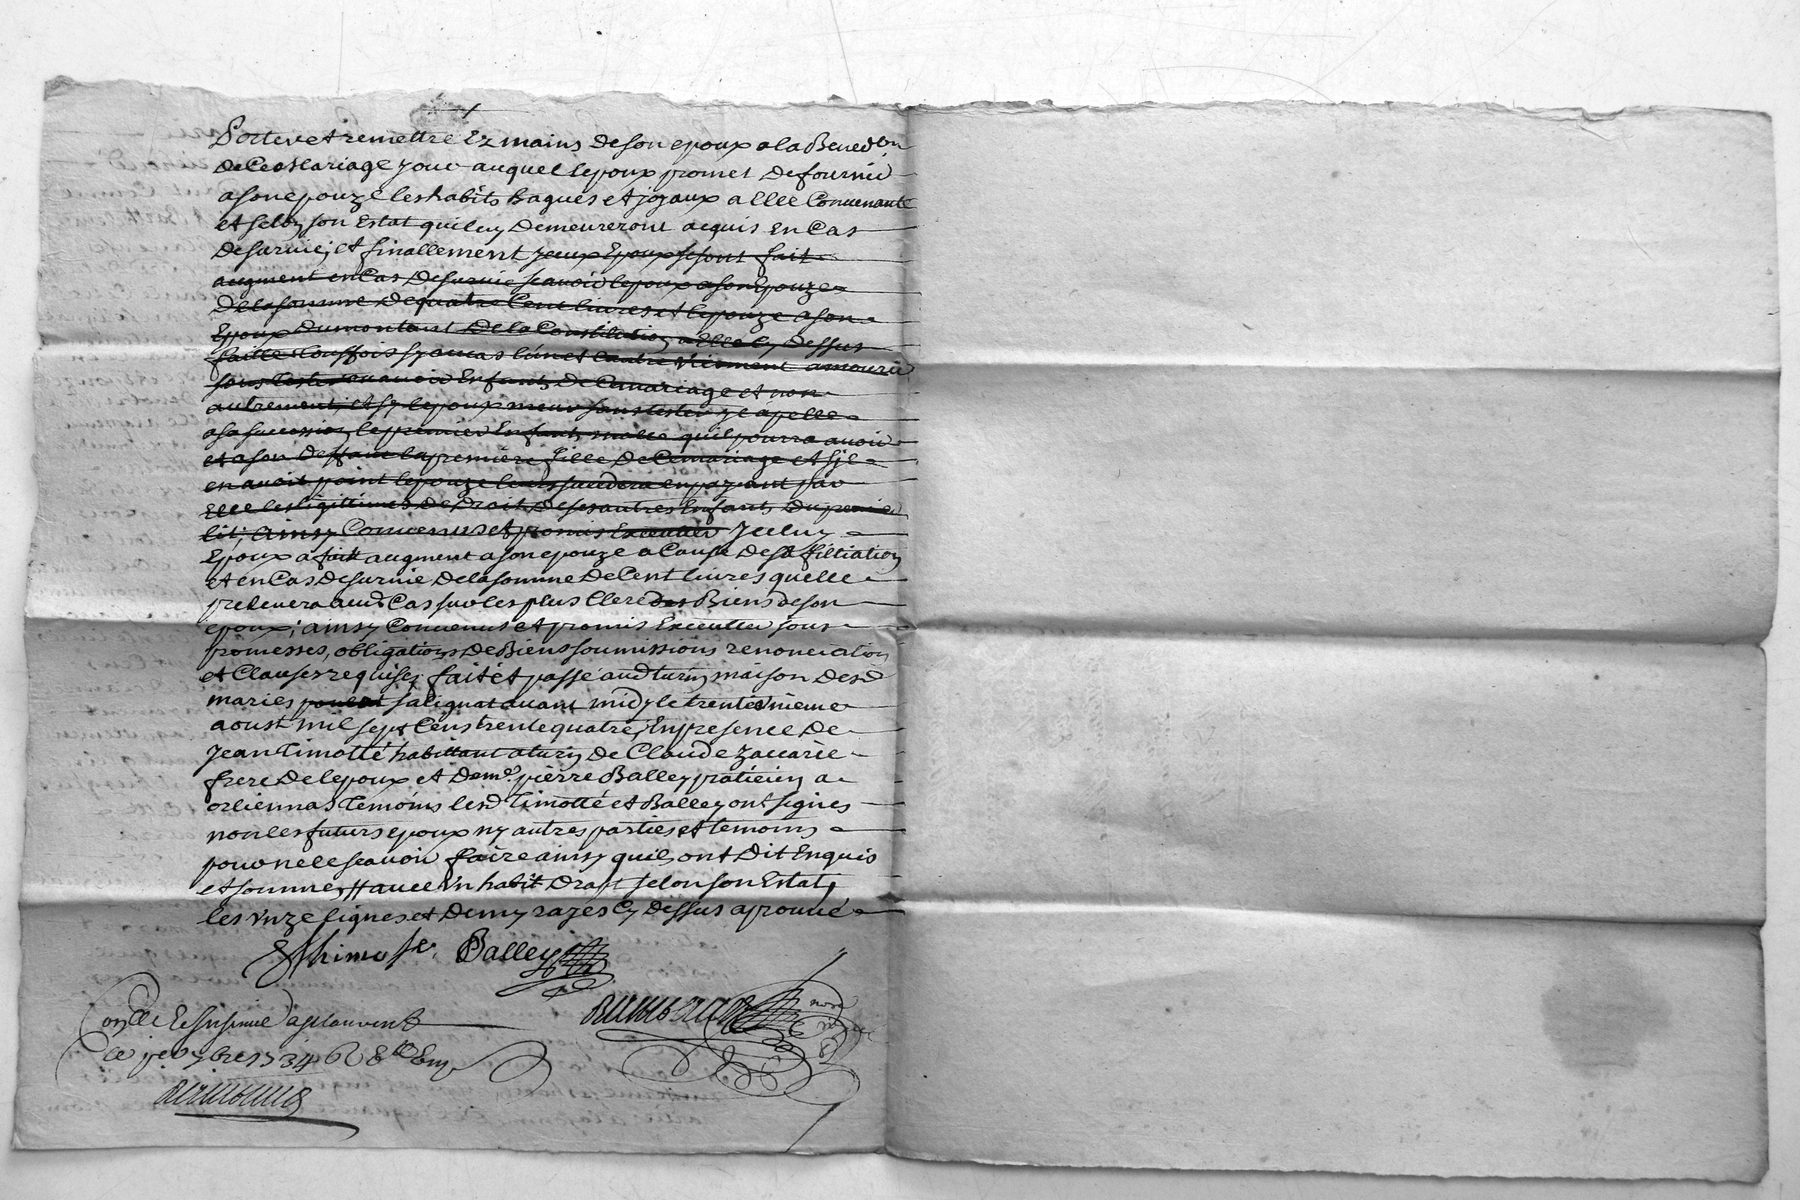 Porter et remettre Ez mains de son epoux a la Bened.on
de Ce Mariage jour auquel lepoux promet de fournir
a son epouze les habits bagues et joyaux a Elle Convenante
et selon son Estat qui luy demeureront acquis en Cas
de survie, et finallement yceux Epoux se sont fait
augment en Cas de survie scavoir lepoux a son Epouze
de la somme de quatre Cent livres et lepouze a son
Epoux du montant de la Constitution a Elle Cy dessus
faitte touffois sy aucas l'un et l'autre viennent a mourir
sans tester ou avoir Enfants de Ce mariage et non
autrement, et sy lepoux meur sans tester ze apelle
a sa succession le premier Enfant malle quil pourra avoir
et a son deffaut la premiere fille de Ce mariage et sil
en avoit point lepouze leur succedera en payant par
Elle les legittimes de droit de ses autres Enfants du premier
lit, ainsy Convenus et promis Executter Jceluy
Epoux a fait augment a son epouze a Cause de sa filliation
et en Cas de survie de la somme de Cent livres quelle
prelevera aud. Cas sur les plus Clere des Biens de son
epoux; ainsy Convenus et promis Executter sous
promesses, obligations de Biens soumissions renonciation
et Clauses requises fait et passé aud turin maison desd
maries salignat avant midy le trente
aoust mil sept Cens trente quatre, En presence de
Jean Timotté habittant a turin de Claude Zaccarie
frere de lepoux et de me. pierre Balley praticien a
orliennas temoins lesd Timotté et Balley ont signes
non les futurs epoux ny autres parties et temoins
pour ne le scavoir faire ainsy quils ont dit Enquis
et sommes avec Un habit drapt selon son Estat,
les Unze lignes et demy razés Cy dessus aprouvé
Thimote Balley